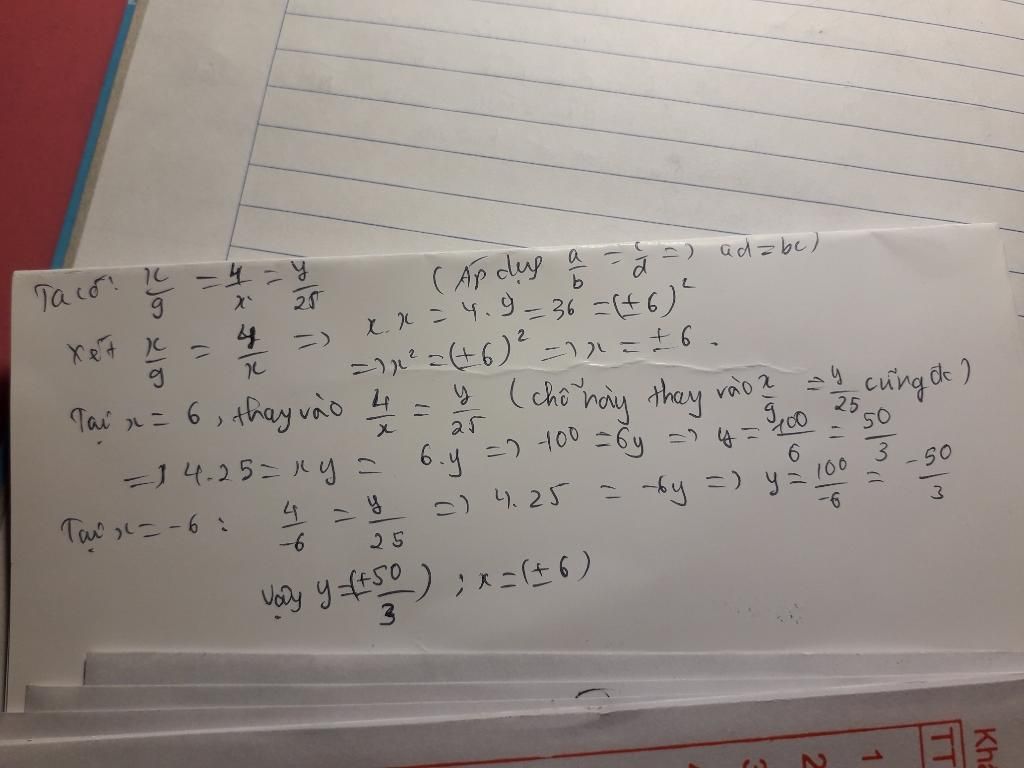 Ta có: x/9 = 4/x = y/25 (Áp dụng a/b = c/d => ad = bc)
xét x/9 = 4/x => x.x = 4.9 = 36 = (±6)²
=> x² = (±6)² => x = ±6.
Tại x = 6, thay vào 4/x = y/25 (chỗ này thay vào x/9 = y/25 cũng đc)
=> 4.25 = xy = 6.y => 100 = 6y => y = 100/6 = 50/3
Tại x = -6: 4/-6 = y/25 => 4.25 = -6y => y = 100/-6 = -50/3
Vậy y = (±50/3); x = (±6)
Kh
TT
1
2
3